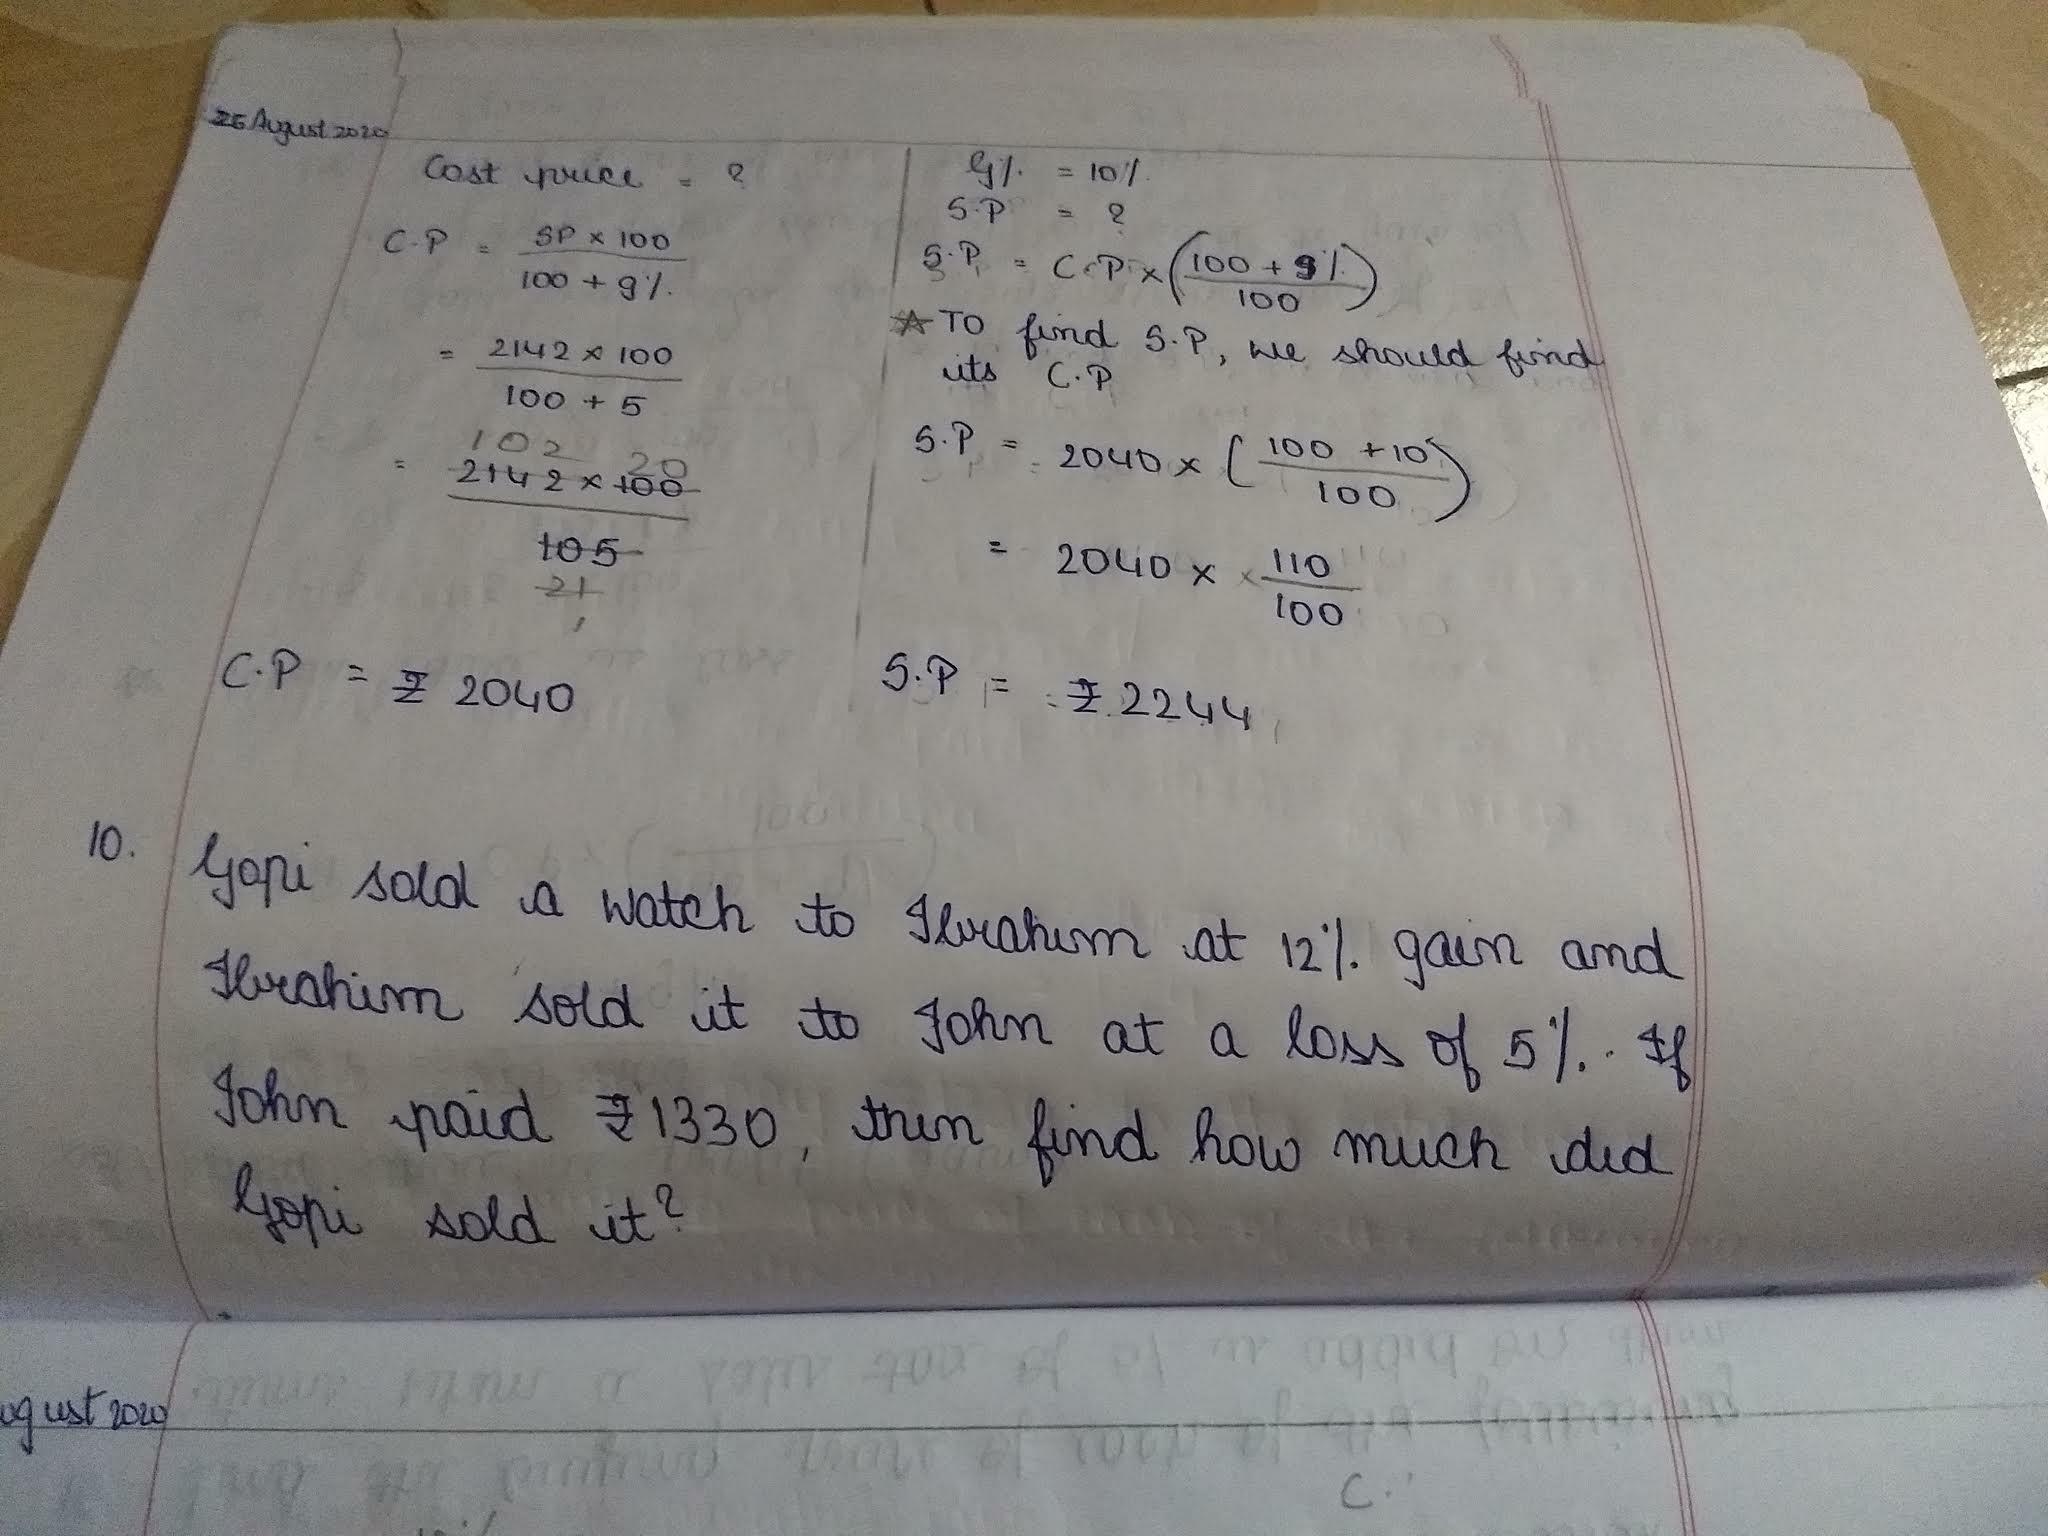 25 August 2020
Cost price = ?
C.P = SP × 100
100 + g%.
= 2142 × 100
100 + 5
102 20
= 2142 × 100
105
21
C.P = ₹ 2040
G%. = 10%.
S.P = ?
S.P = C.P × (100 + g%.
100)
☆ TO find S.P, we should find
its C.P
S.P = 2040 × (100 + 10
100)
= 2040 × 110
100
S.P = ₹ 2244
10. Gopi sold a watch to Ibrahim at 12%. gain and
Ibrahim sold it to John at a loss of 5%. If
John paid ₹ 1330, then find how much did
Gopi sold it?
ugust 2020
C.